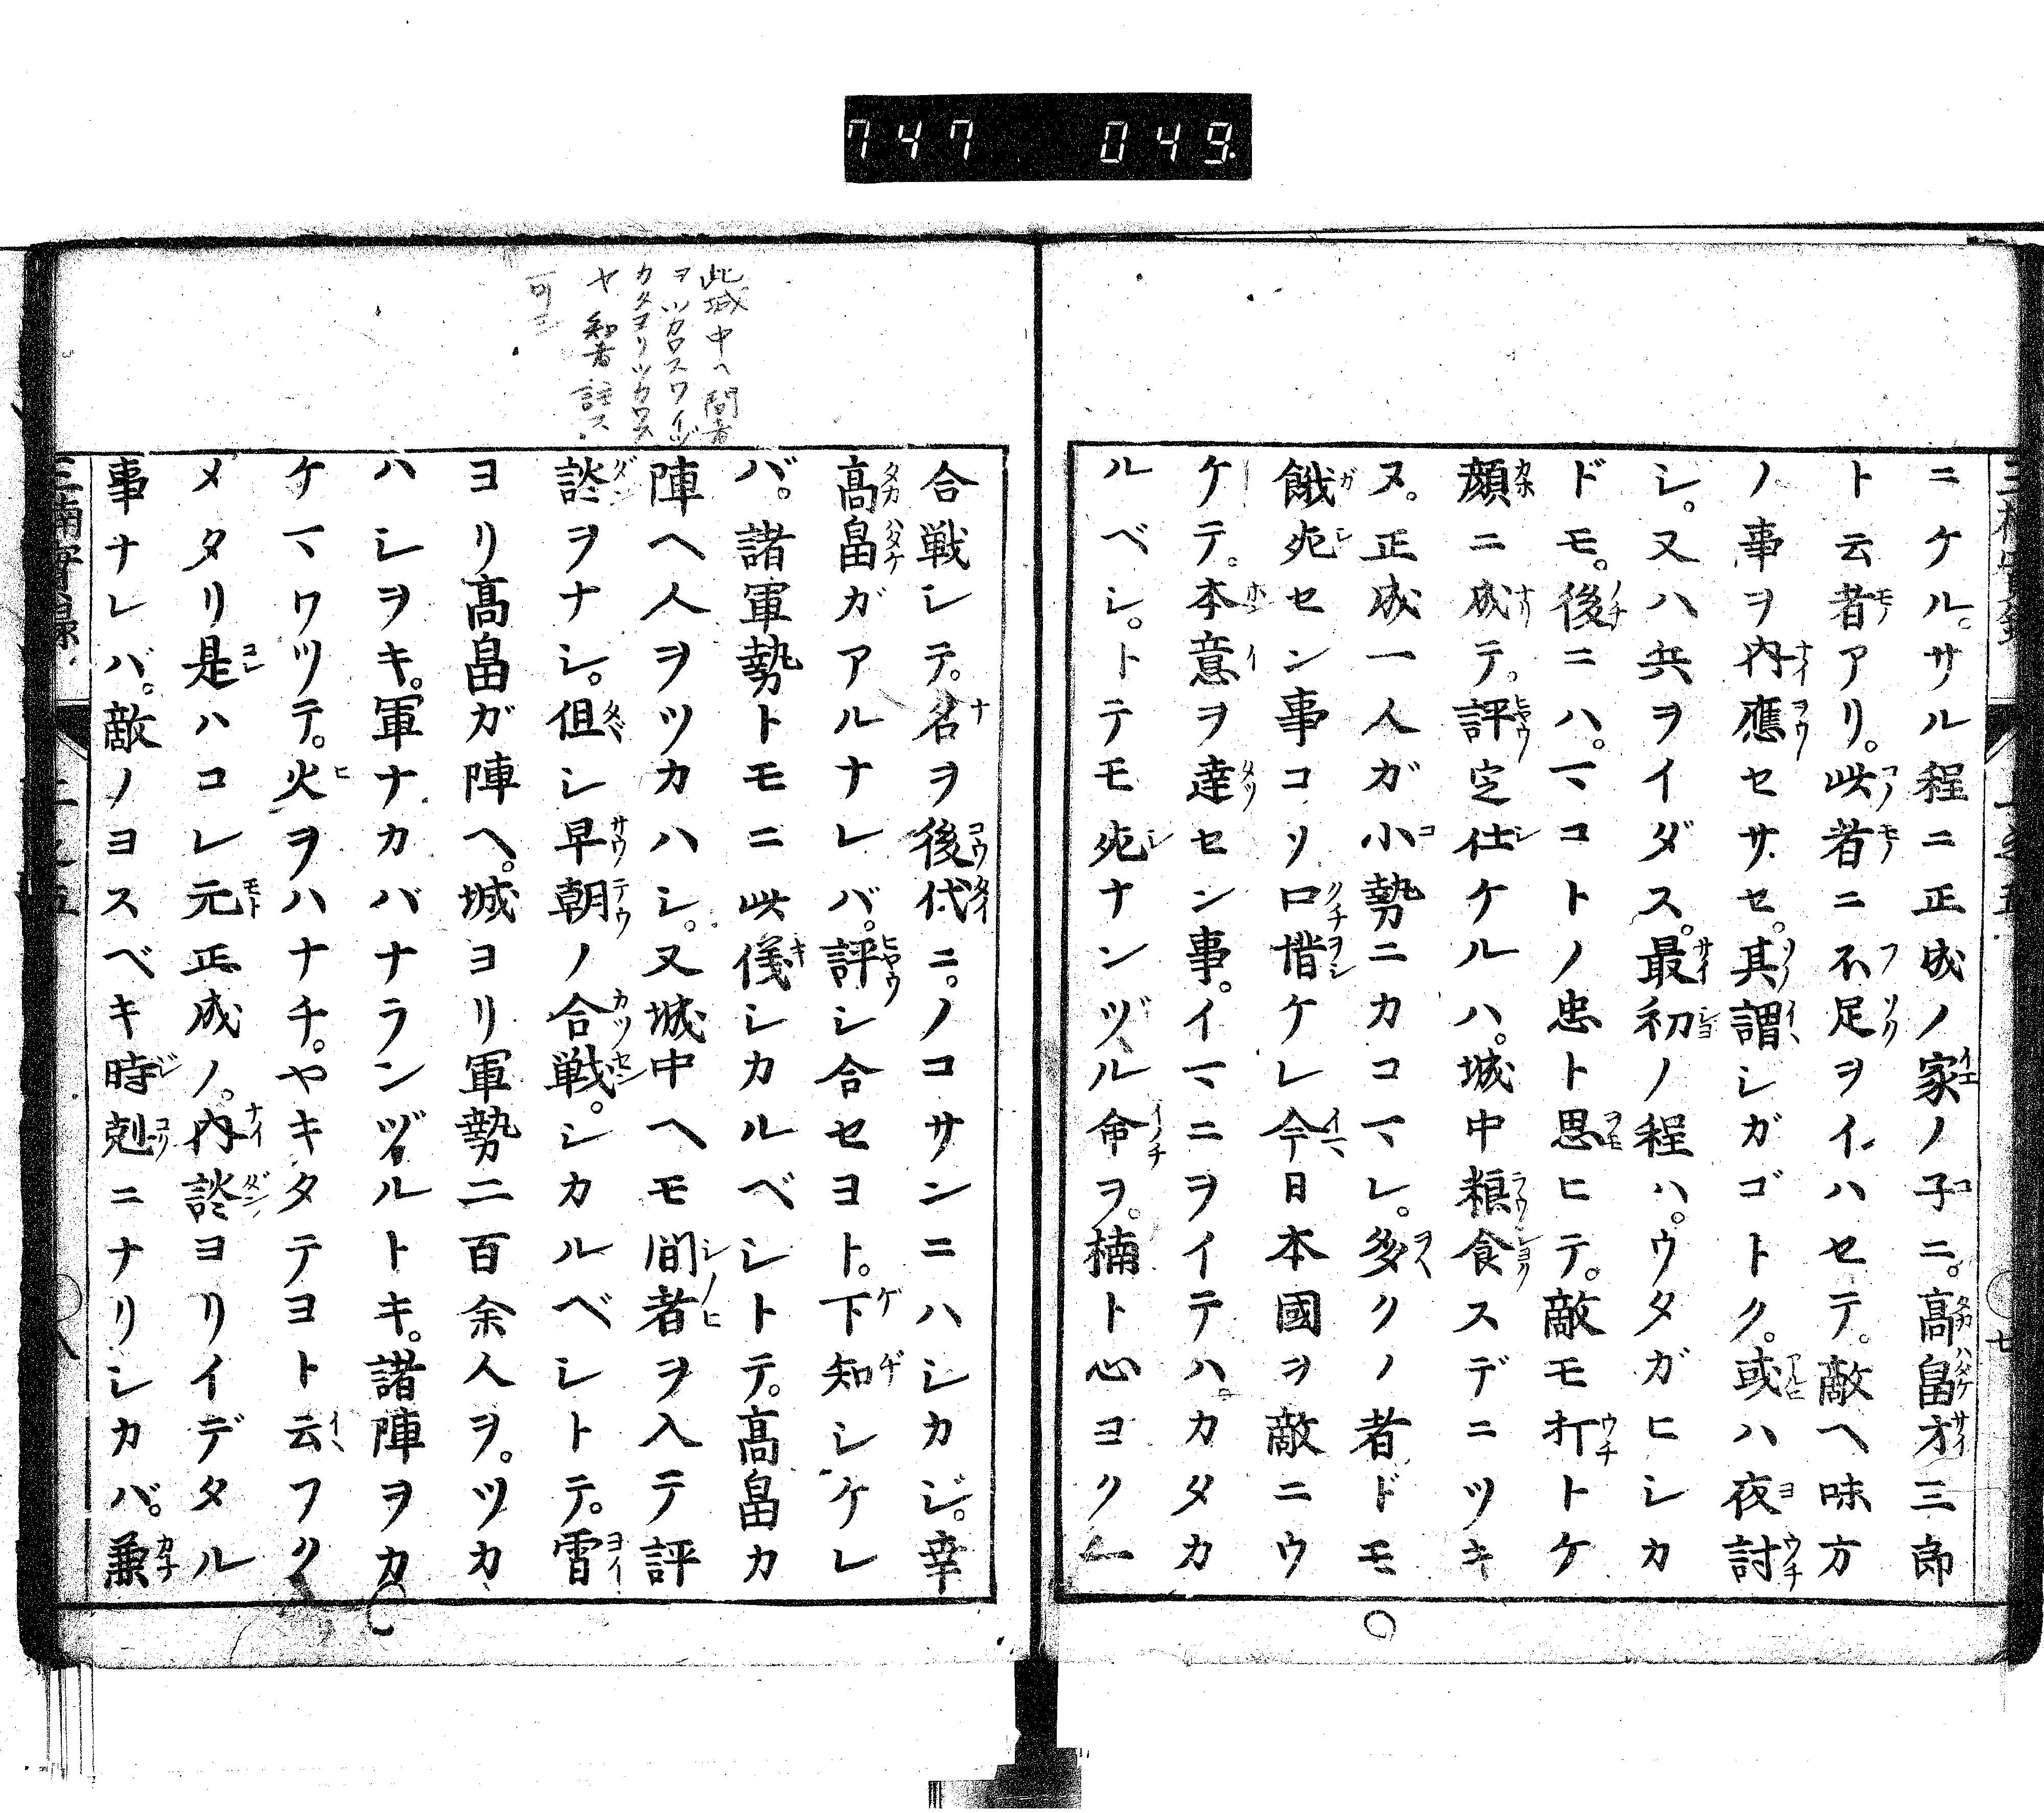 747 049.
ニケル。サル程ニ正成ノ家ノ子ニ。高畠才三郎
ト云者アリ。此者ニ不足ヲイハセテ。敵ヘ味方
ノ事ヲ内應セサセ。其謂シガゴトク。或ハ夜討
シ。又ハ兵ヲイダス。最初ノ程ハ。ウタガヒシカ
ドモ。後ニハ。マコトノ忠ト思ヒテ。敵モ打トケ
顔ニ成テ。評定仕ケルハ。城中粮食スデニツキ
ヌ。正成一人ガ小勢ニカコマレ。多クノ者ドモ
餓死セン事コソ口惜ケレ今日本國ヲ敵ニウ
ケテ。本意ヲ達セン事。イマニヲイテハ。カタカ
ルベシ。トテモ死ナンヅル命ヲ。楠ト心ヨク一
合戦シテ。名ヲ後代ニ。ノコサンニハシカジ。幸
高畠ガアルナレバ。評シ合セヨト。下知シケレ
バ。諸軍勢トモニ此儀シカルベシトテ。高畠カ
陣ヘ人ヲツカハシ。又城中ヘモ間者ヲ入テ評
談ヲナシ。但シ早朝ノ合戦。シカルベシトテ。宵
ヨリ高畠ガ陣ヘ。城ヨリ軍勢二百余人ヲ。ツカ
ハシヲキ。軍ナカバナランヅルトキ。諸陣ヲカ
ケマワツテ。火ヲハナチ。ヤキタテヨト云フク
メタリ是ハコレ元正成ノ。内談ヨリイデタル
事ナレバ。敵ノヨスベキ時剋ニナリシカバ。兼
此城中ヘ間者
ヤ知者註ス